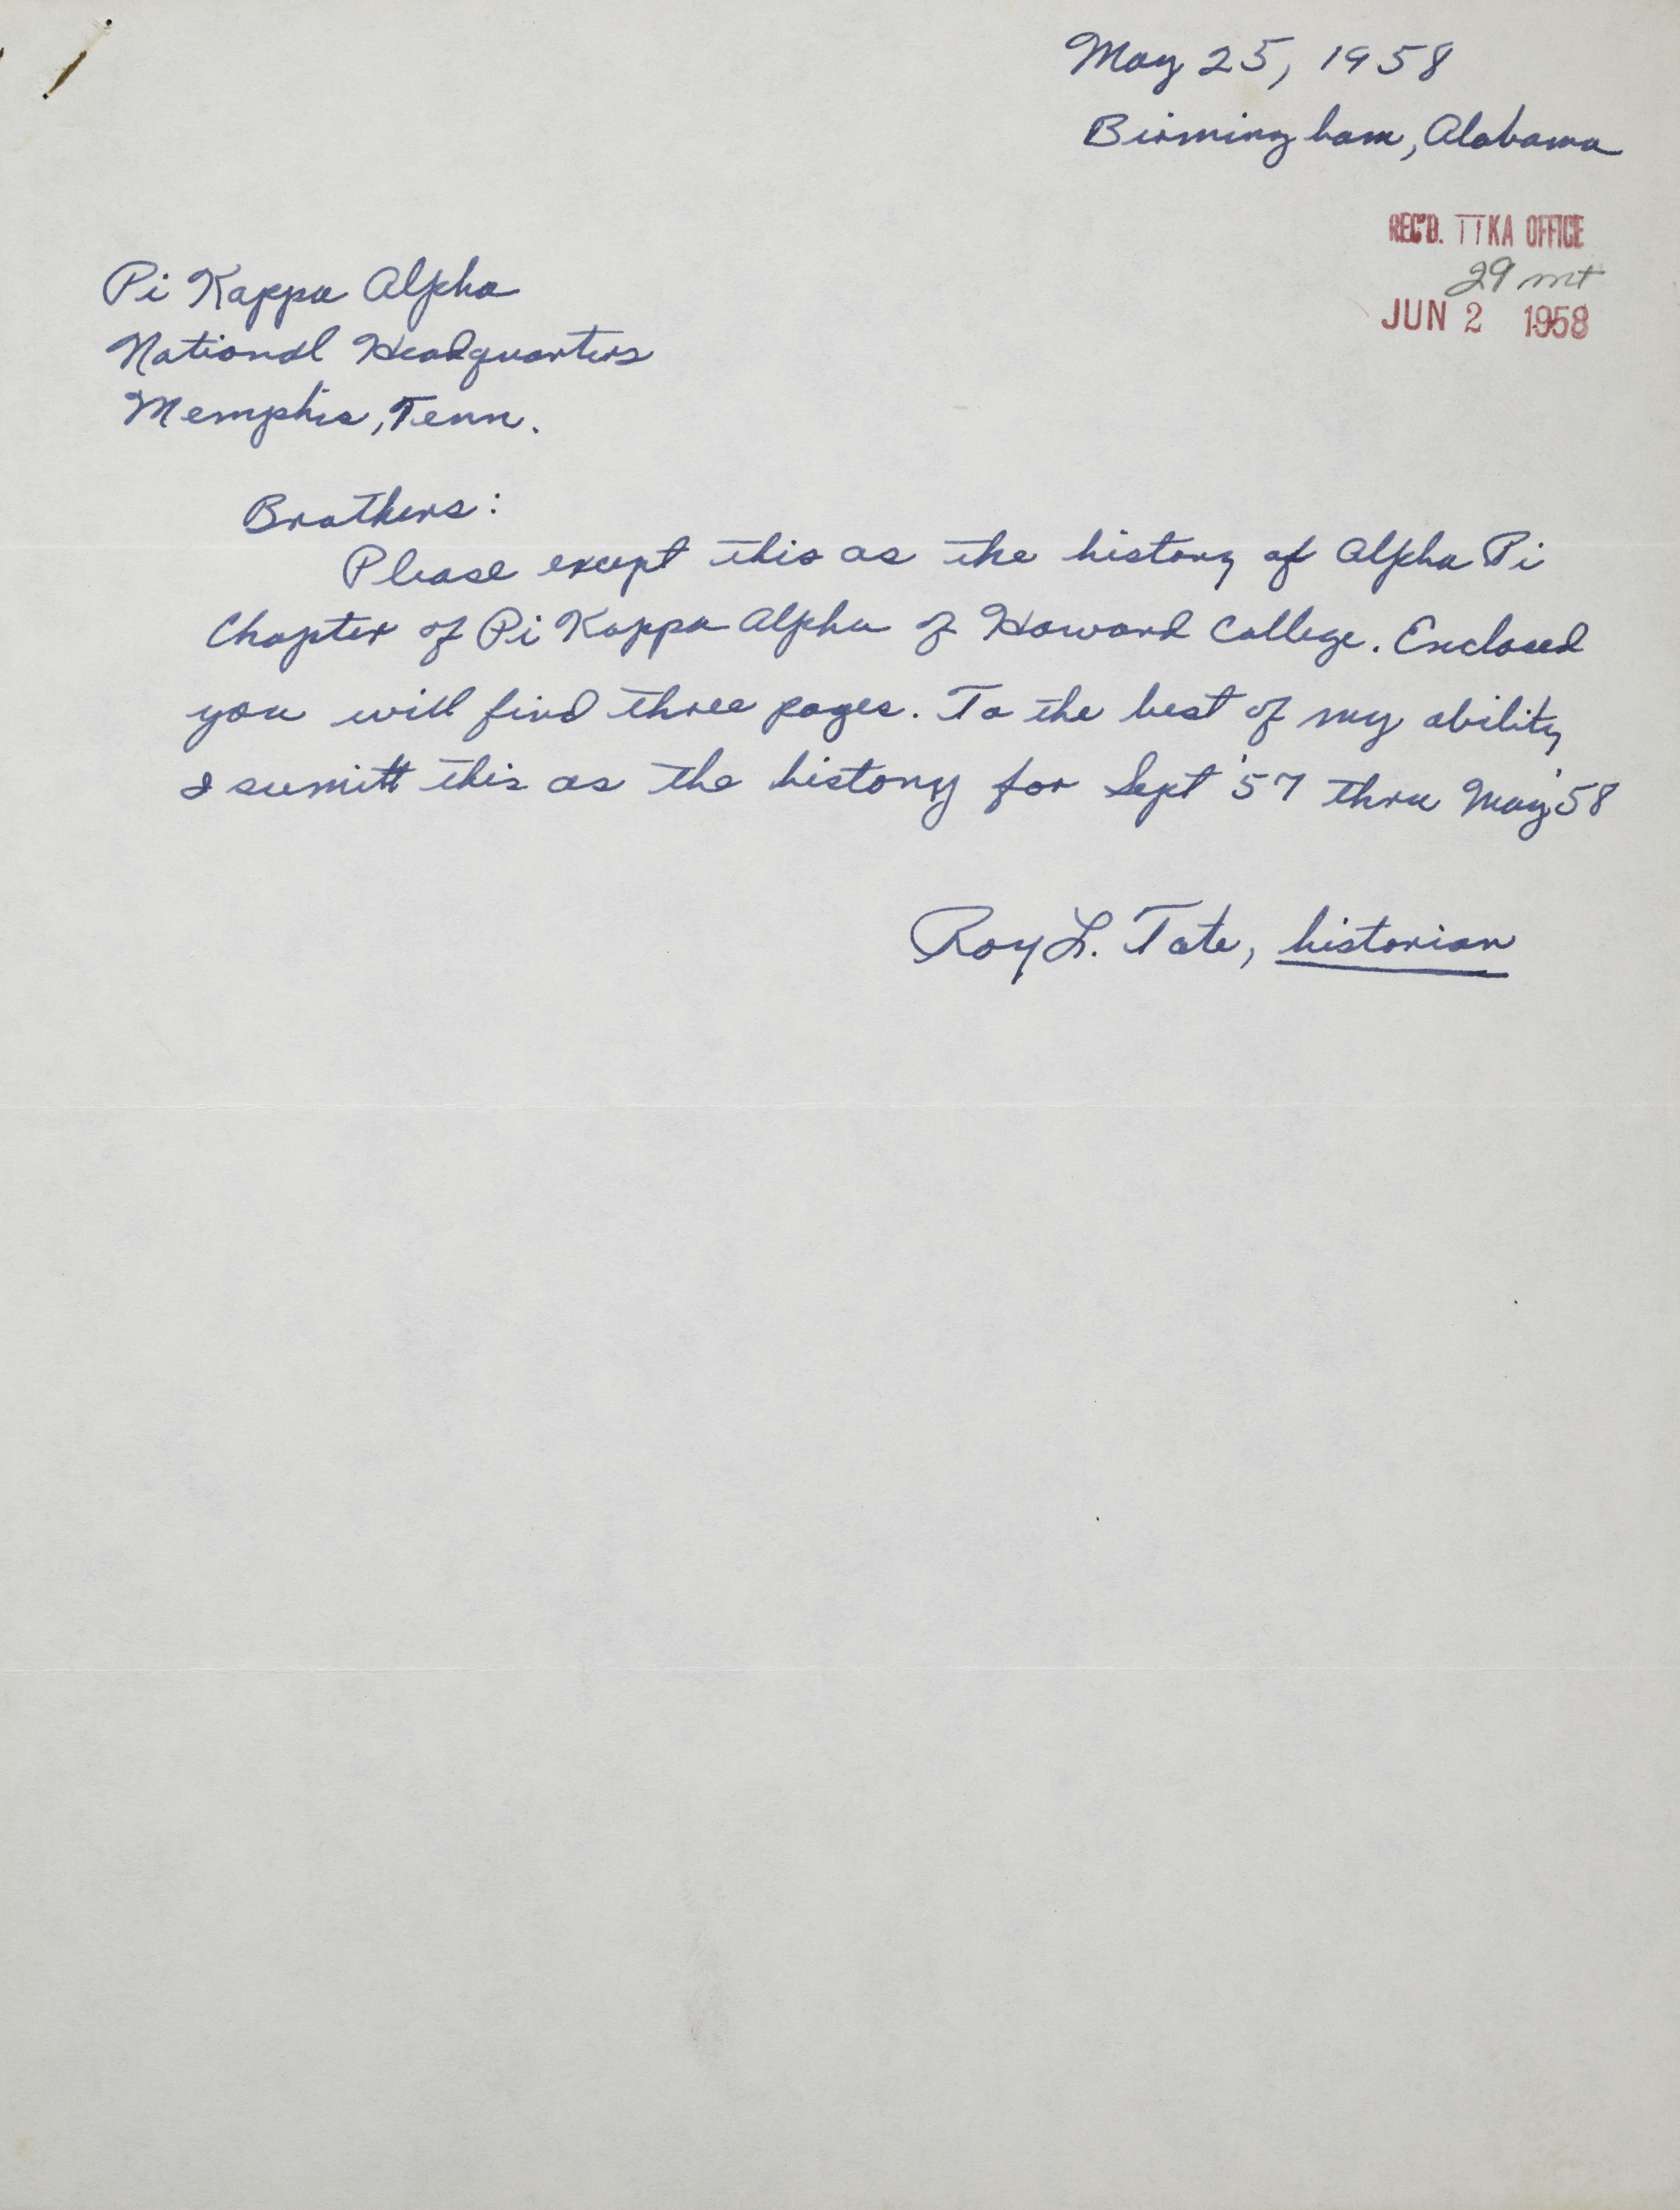 May 25, 1958
Birmingham, Alabama
REC'D. ΠKA OFFICE
29 mt
JUN 2 1958
Pi Kappa Alpha
National Headquarters
Memphis, Tenn.
Brothers:
Please except this as the history of Alpha Pi
Chapter of Pi Kappa Alpha of Howard College. Enclosed
you will find three pages. To the best of my ability
I sumitt this as the history for Sept '57 thru May '58
Roy L. Tate, historian